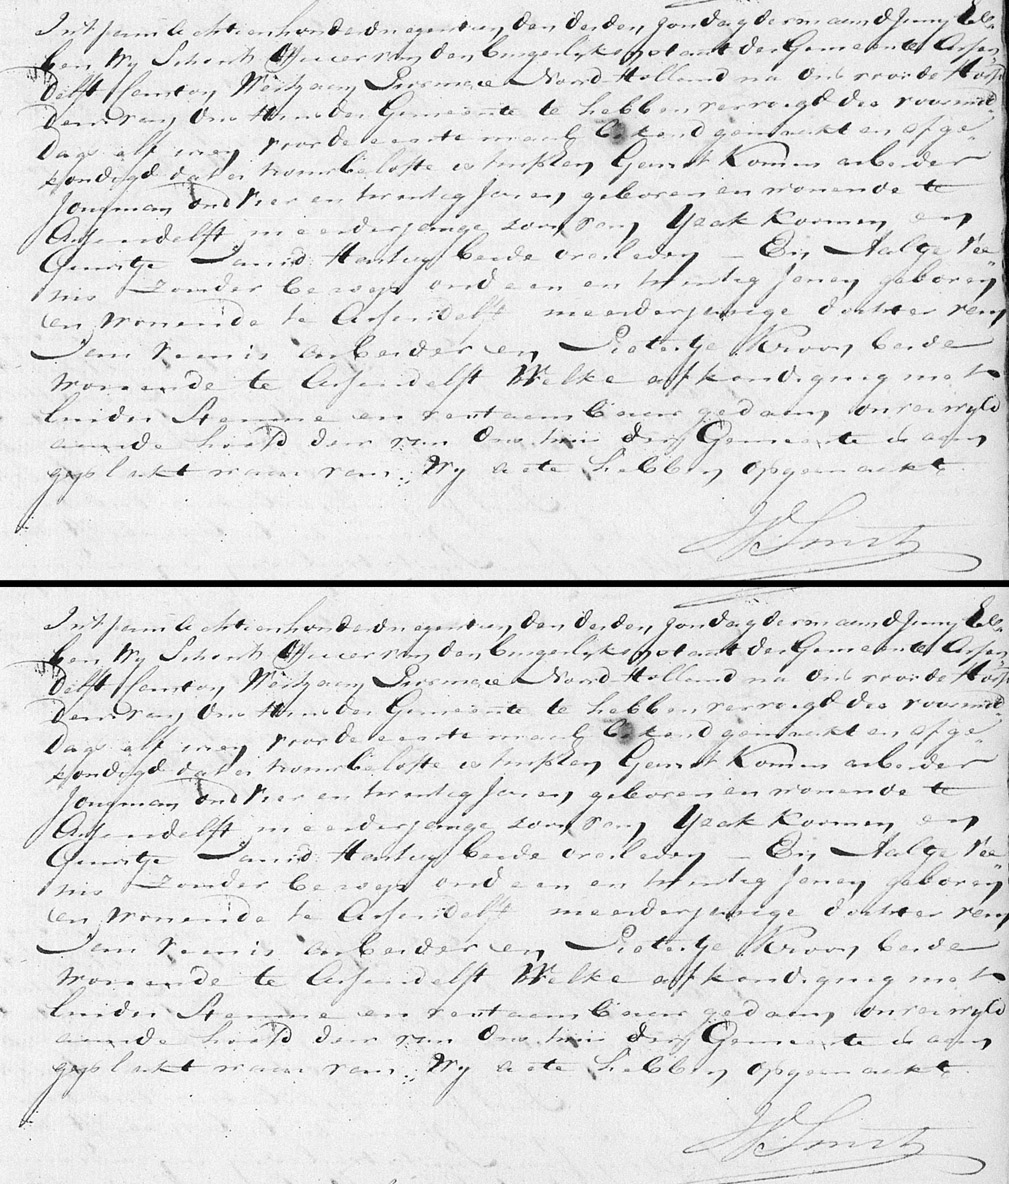 Int Jaar achtienhonderdnegentien, den derden zondag der maand Juny heb
ben Wy Schout Officier van den burgerlyke Staat der Gemeente Assen
delft Canton Westzaan Noord Holland na ons voor de Hoofd
deur van Ons Huis der Gemeente te hebben vervoegd des voormid
dags elf uren voor de eerste maal bekend gemaakt en afge
kondigd dat er trouwbelofte is tusschen Gerrit Komen arbeider
Jongman oud vier en twintig Jaren, geboren en wonende te
Assendelft meerderjarige zoon van Yzak Koomen en
Hartog beide overleden — En Aaltje Ree
nis zonder beroep oud een en twintig Jaren geboren
en wonende te Assendelft meerderjarige dochter van
Jan Reenis arbeider en Pietertje Kroon beide
wonende te Assendelft Welke afkondiging met
luider Stemme en verstaanbaar gedaan, onverwyld
aan de hoofd deur van Ons huis der Gemeente is aan
geplakt waar van Wy acte hebben opgemaakt
Int Jaar achtienhonderdnegentien, den derden zondag der maand Juny heb
ben Wy Schout Officier van den burgerlyke Staat der Gemeente Assen
delft Canton Westzaan Noord Holland na ons voor de Hoofd
deur van Ons Huis der Gemeente te hebben vervoegd des voormid
dags elf uren voor de eerste maal bekend gemaakt en afge
kondigd dat er trouwbelofte is tusschen Gerrit Komen arbeider
Jongman oud vier en twintig Jaren, geboren en wonende te
Assendelft meerderjarige zoon van Yzak Koomen en
Hartog beide overleden — En Aaltje Ree
nis zonder beroep oud een en twintig Jaren geboren
en wonende te Assendelft meerderjarige dochter van
Jan Reenis arbeider en Pietertje Kroon beide
wonende te Assendelft Welke afkondiging met
luider Stemme en verstaanbaar gedaan, onverwyld
aan de hoofd deur van Ons huis der Gemeente is aan
geplakt waar van Wy acte hebben opgemaakt